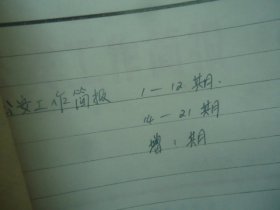 安工作简报 1—12 期.
14—21 期
增:期